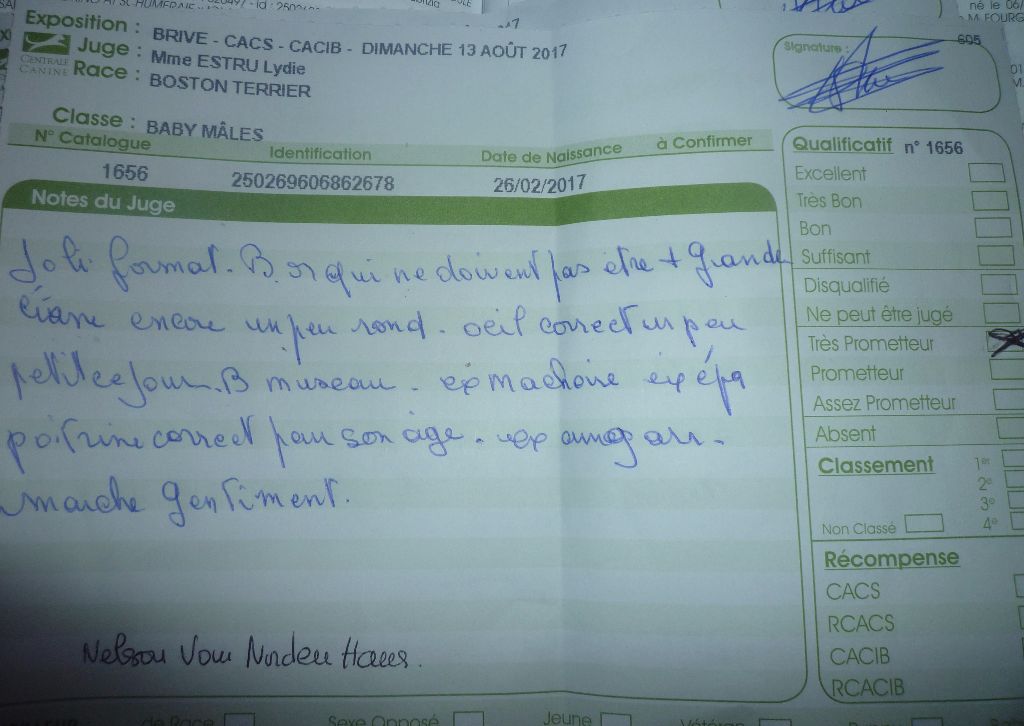 Exposition : BRIVE - CACS - CACIB - DIMANCHE 13 AOÛT 2017
Juge : Mme ESTRU Lydie
CENTRALE CANINE
Race : BOSTON TERRIER
Signature :
605
Classe : BABY MÂLES
N° Catalogue Identification Date de Naissance à Confirmer
1656 250269606862678 26/02/2017
Notes du Juge
Joli format. B qui ne doivent pas être + grande
crâne encore un peu rond. oeil correct un peu
petit ce jour. B museau. ex machoire
poitrine correct pour son âge. ex
marche gentiment.
Nelson Vom Norden Haus.
Qualificatif n° 1656
Excellent
Très Bon
Bon
Suffisant
Disqualifié
Ne peut être jugé
Très Prometteur
Prometteur
Assez Prometteur
Absent
Classement 1er
2e
3e
Non Classé 4e
Récompense
CACS
RCACS
CACIB
RCACIB
de Race Sexe Opposé Jeune Vétéran